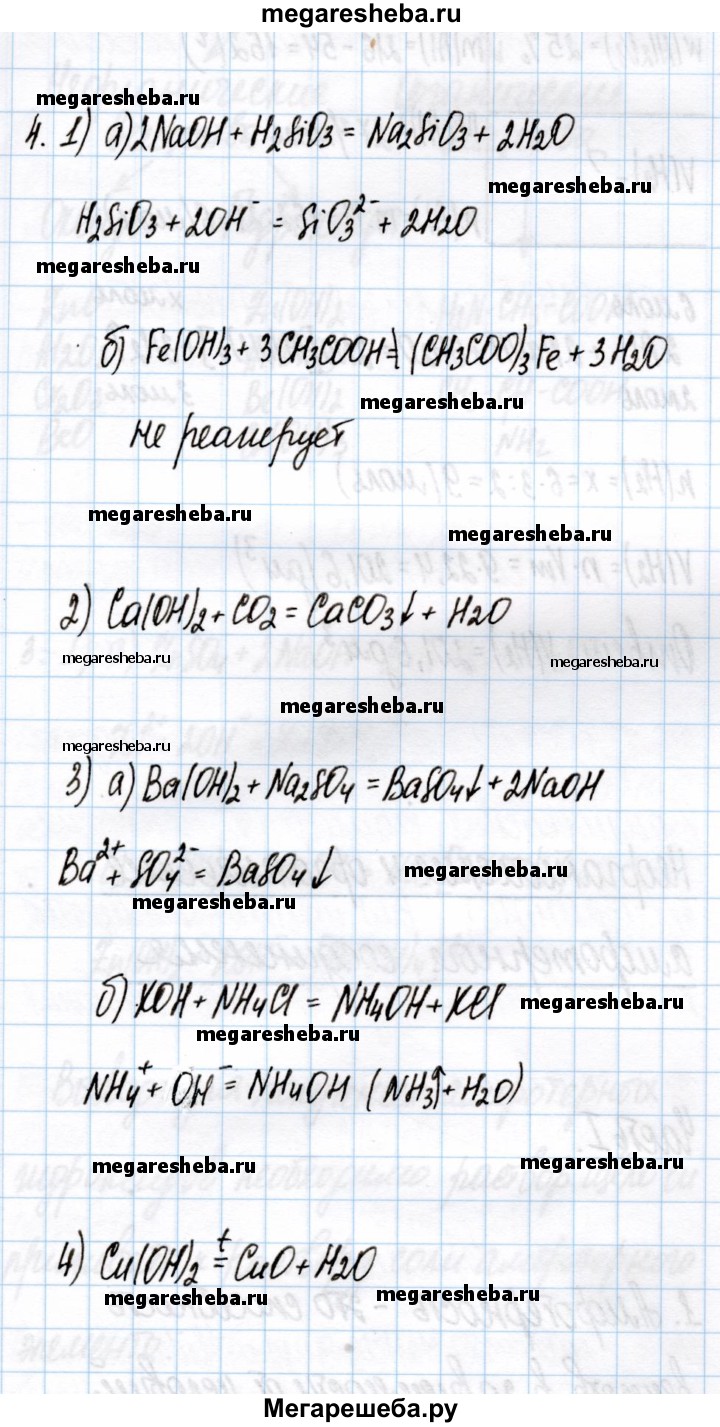 megaresheba.ru
megaresheba.ru
4. 1) а) 2NaOH + H2SiO3 = Na2SiO3 + 2H2O
megaresheba.ru
H2SiO3 + 2OH⁻ = SiO3²⁻ + 2H2O
megaresheba.ru
б) Fe(OH)3 + 3CH3COOH ≠ (CH3COO)3Fe + 3H2O
megaresheba.ru
не реагирует
megaresheba.ru
megaresheba.ru
2) Ca(OH)2 + CO2 = CaCO3↓ + H2O
megaresheba.ru
megaresheba.ru
megaresheba.ru
megaresheba.ru
3) а) Ba(OH)2 + Na2SO4 = BaSO4↓ + 2NaOH
Ba²⁺ + SO4²⁻ = BaSO4↓
megaresheba.ru
megaresheba.ru
б) KOH + NH4Cl = NH4OH + KCl
megaresheba.ru
megaresheba.ru
NH4⁺ + OH⁻ = NH4OH (NH3↑ + H2O)
megaresheba.ru
megaresheba.ru
4) Cu(OH)2 t= CuO + H2O
megaresheba.ru
megaresheba.ru
Мегарешеба.ру